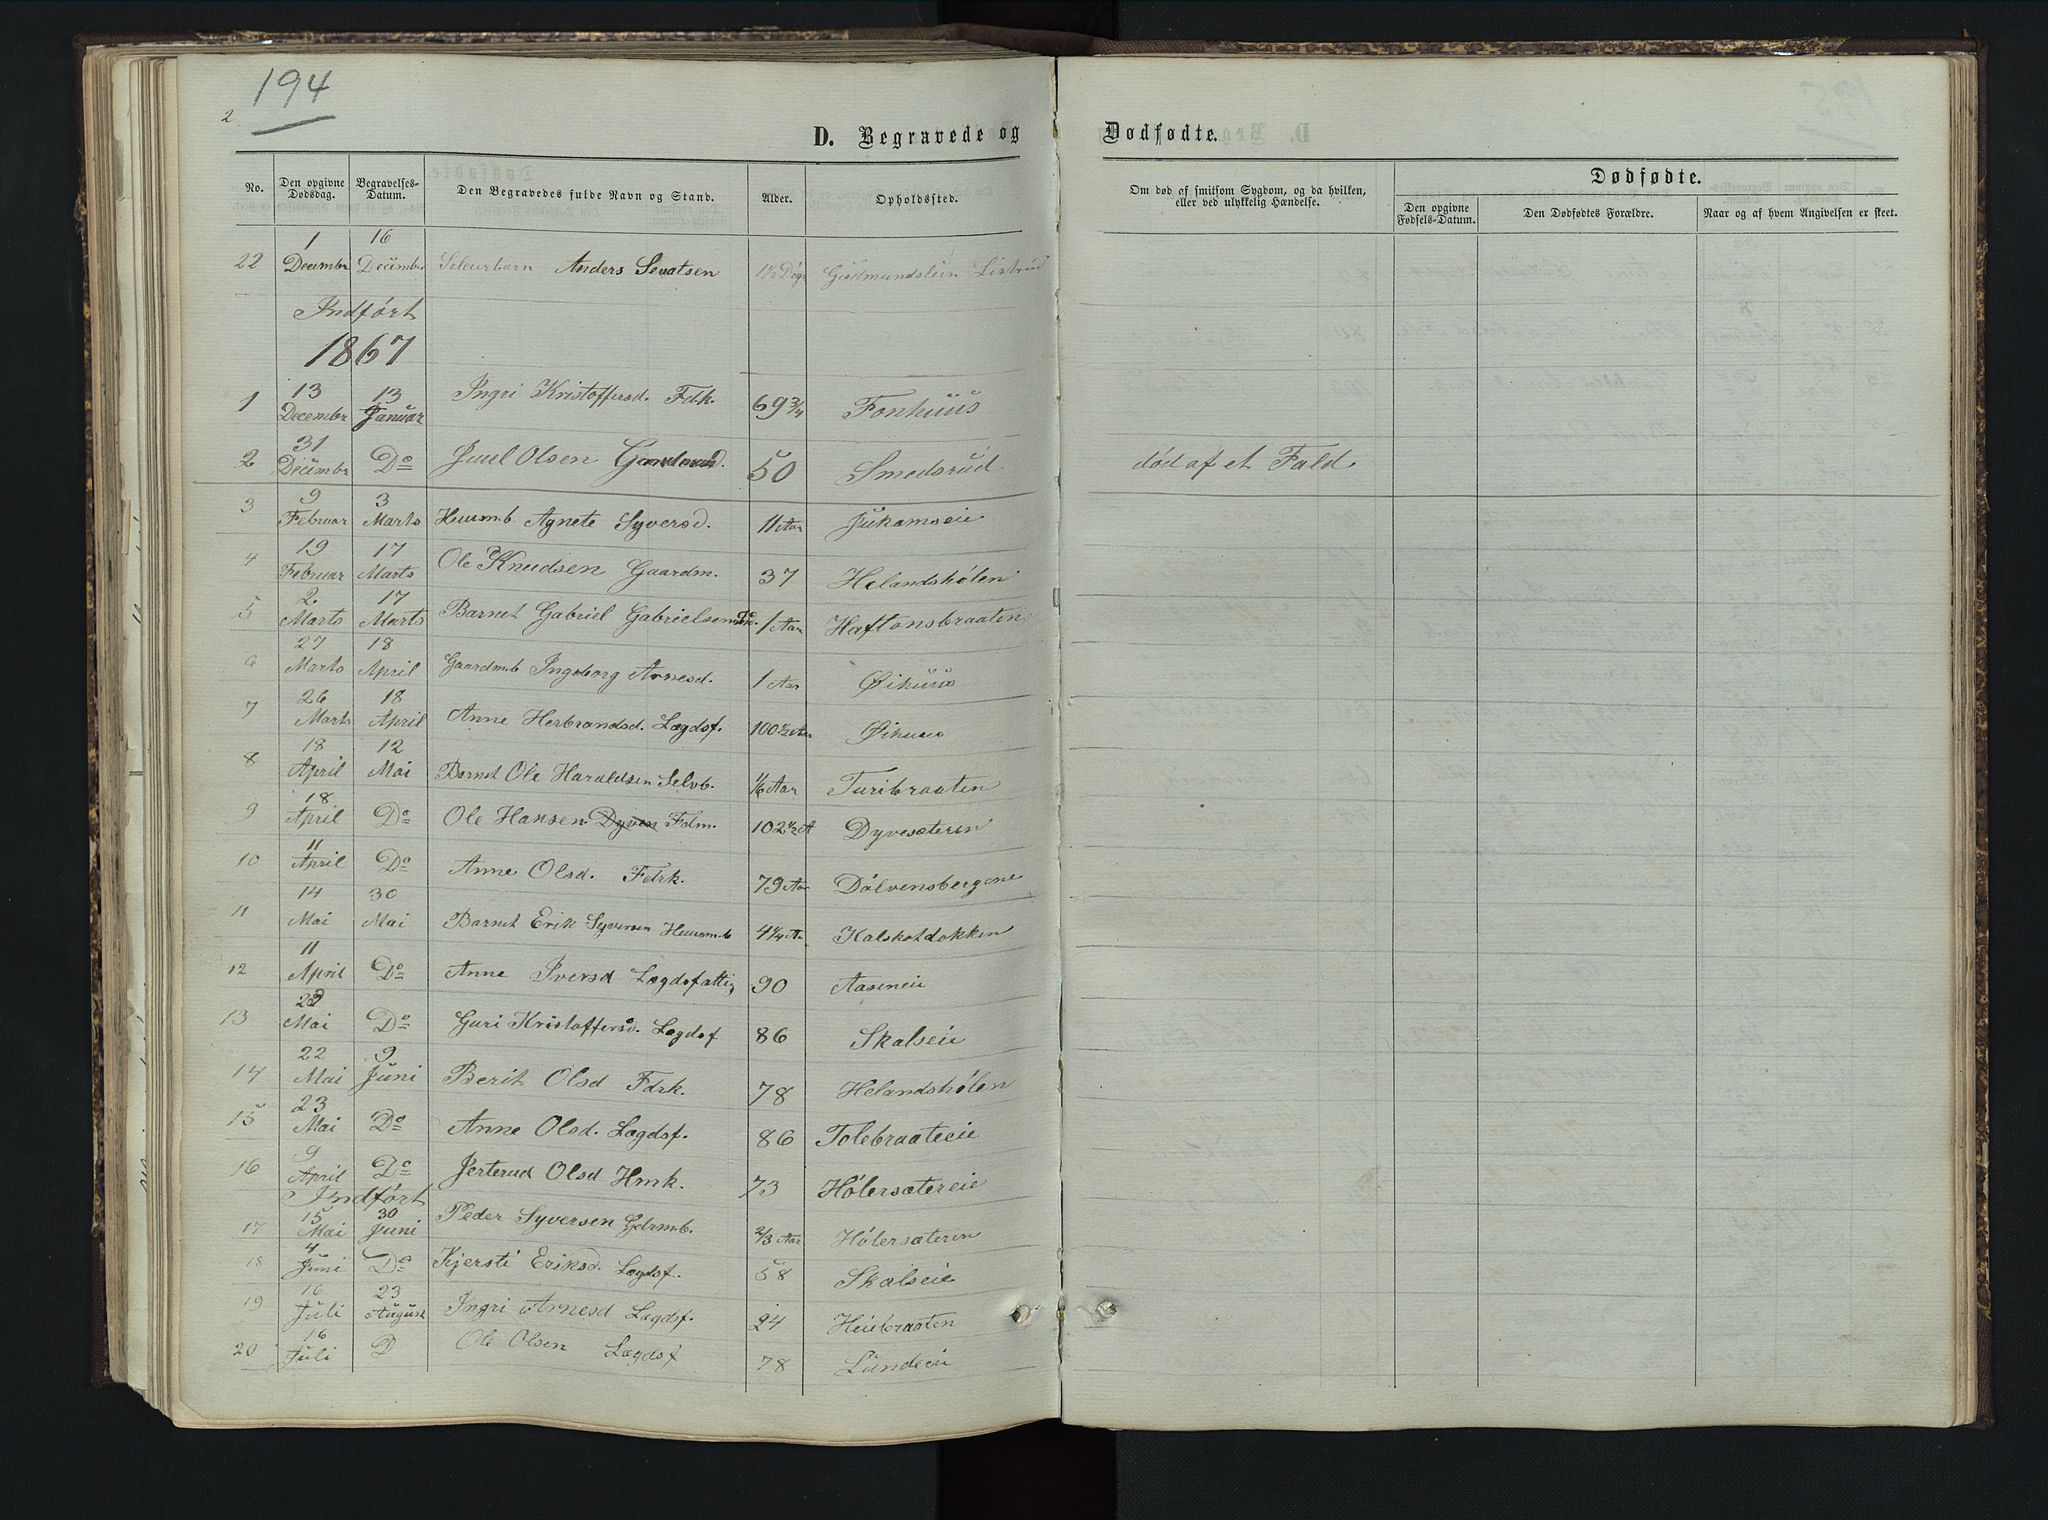 194
2
D. Begravede og Dødfødte.
No. Den opgivne Dødsdag. Begravelses-Datum. Den Begravedes fulde Navn og Stand. Alder. Opholdssted. Om død af smitsom Sygdom, og da hvilken, eller ved ulykkelig Hændelse. Dødfødte.
Den opgivne Fødsels-Datum. Den Dødfødtes Forældre. Naar og af hvem Angivelsen er skeet.
22 1 December 16 December Anders Sevatsen 1½ Døgn
Indført
1867
1 13 December 13 Januar Ingri Kristoffersd. Fdk. 69¾ Fonhuus
2 31 December Do Juul Olsen 50 Smedsrud død af et Fald
3 9 Februar 3 Marts Huusmb. Agnete Syversd. 11 Aar Jukamseie
4 19 Februar 17 Marts Ole Knudsen Gaardm. 37 Helandshølen
5 2 Marts 17 Marts Barnet Gabriel Gabrielsen 1 Aar Haftonsbraaten
6 27 Marts 18 April Gaardmb Ingeborg Arnesd. 1 Aar Øihuus
7 26 Marts 18 April Anne Herbrandsd. Lægdsf. 100½ Aar Øihuus
8 18 April 12 Mai Barnet Ole Haraldsen Selvb. 1/6 Aar Turibraaten
9 18 April Do Ole Hansen Dyven Fdm. 102½ A Dyvesæteren
10 11 April Do Anne Olsd. Fdrk. 79 Aar Dølvensbergene
11 14 Mai 30 Mai Barnet Erik Syversen Huusmb 4¼ A Kalskotdokken
12 11 April Do Anne Iversd Lægdsfattig 90 Aaseneie
13 Mai Do Guri Kristoffersd. Lægdsf 86 Skalseie
14 22 Mai 9 Juni Berit Olsd Fdrk. 78 Helandshølen
15 23 Mai Do Anne Olsd. Lægdsf. 86 Tolebraateeie
16 9 April Do Jerterud Olsd Hmk. 73 Hølersætereie
Indført
17 15 Mai 30 Juni Peder Syversen Gdrmb. 2/3 Aar Hølersæteren
18 4 Juni Do Kjersti Eriksd. Lægdsf. 58 Skalseie
19 16 Juli 23 August Ingri Arnesd Lægdsf. 24 Heiebraaten
20 16 Juli D Ole Olsen Lægdsf 78 Lundeeie